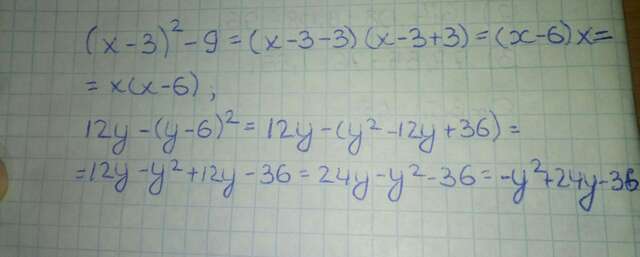 (x-3)²-9=(x-3-3)(x-3+3)=(x-6)x=
=x(x-6);
12y-(y-6)²=12y-(y²-12y+36)=
=12y-y²+12y-36=24y-y²-36=-y²+24y-36